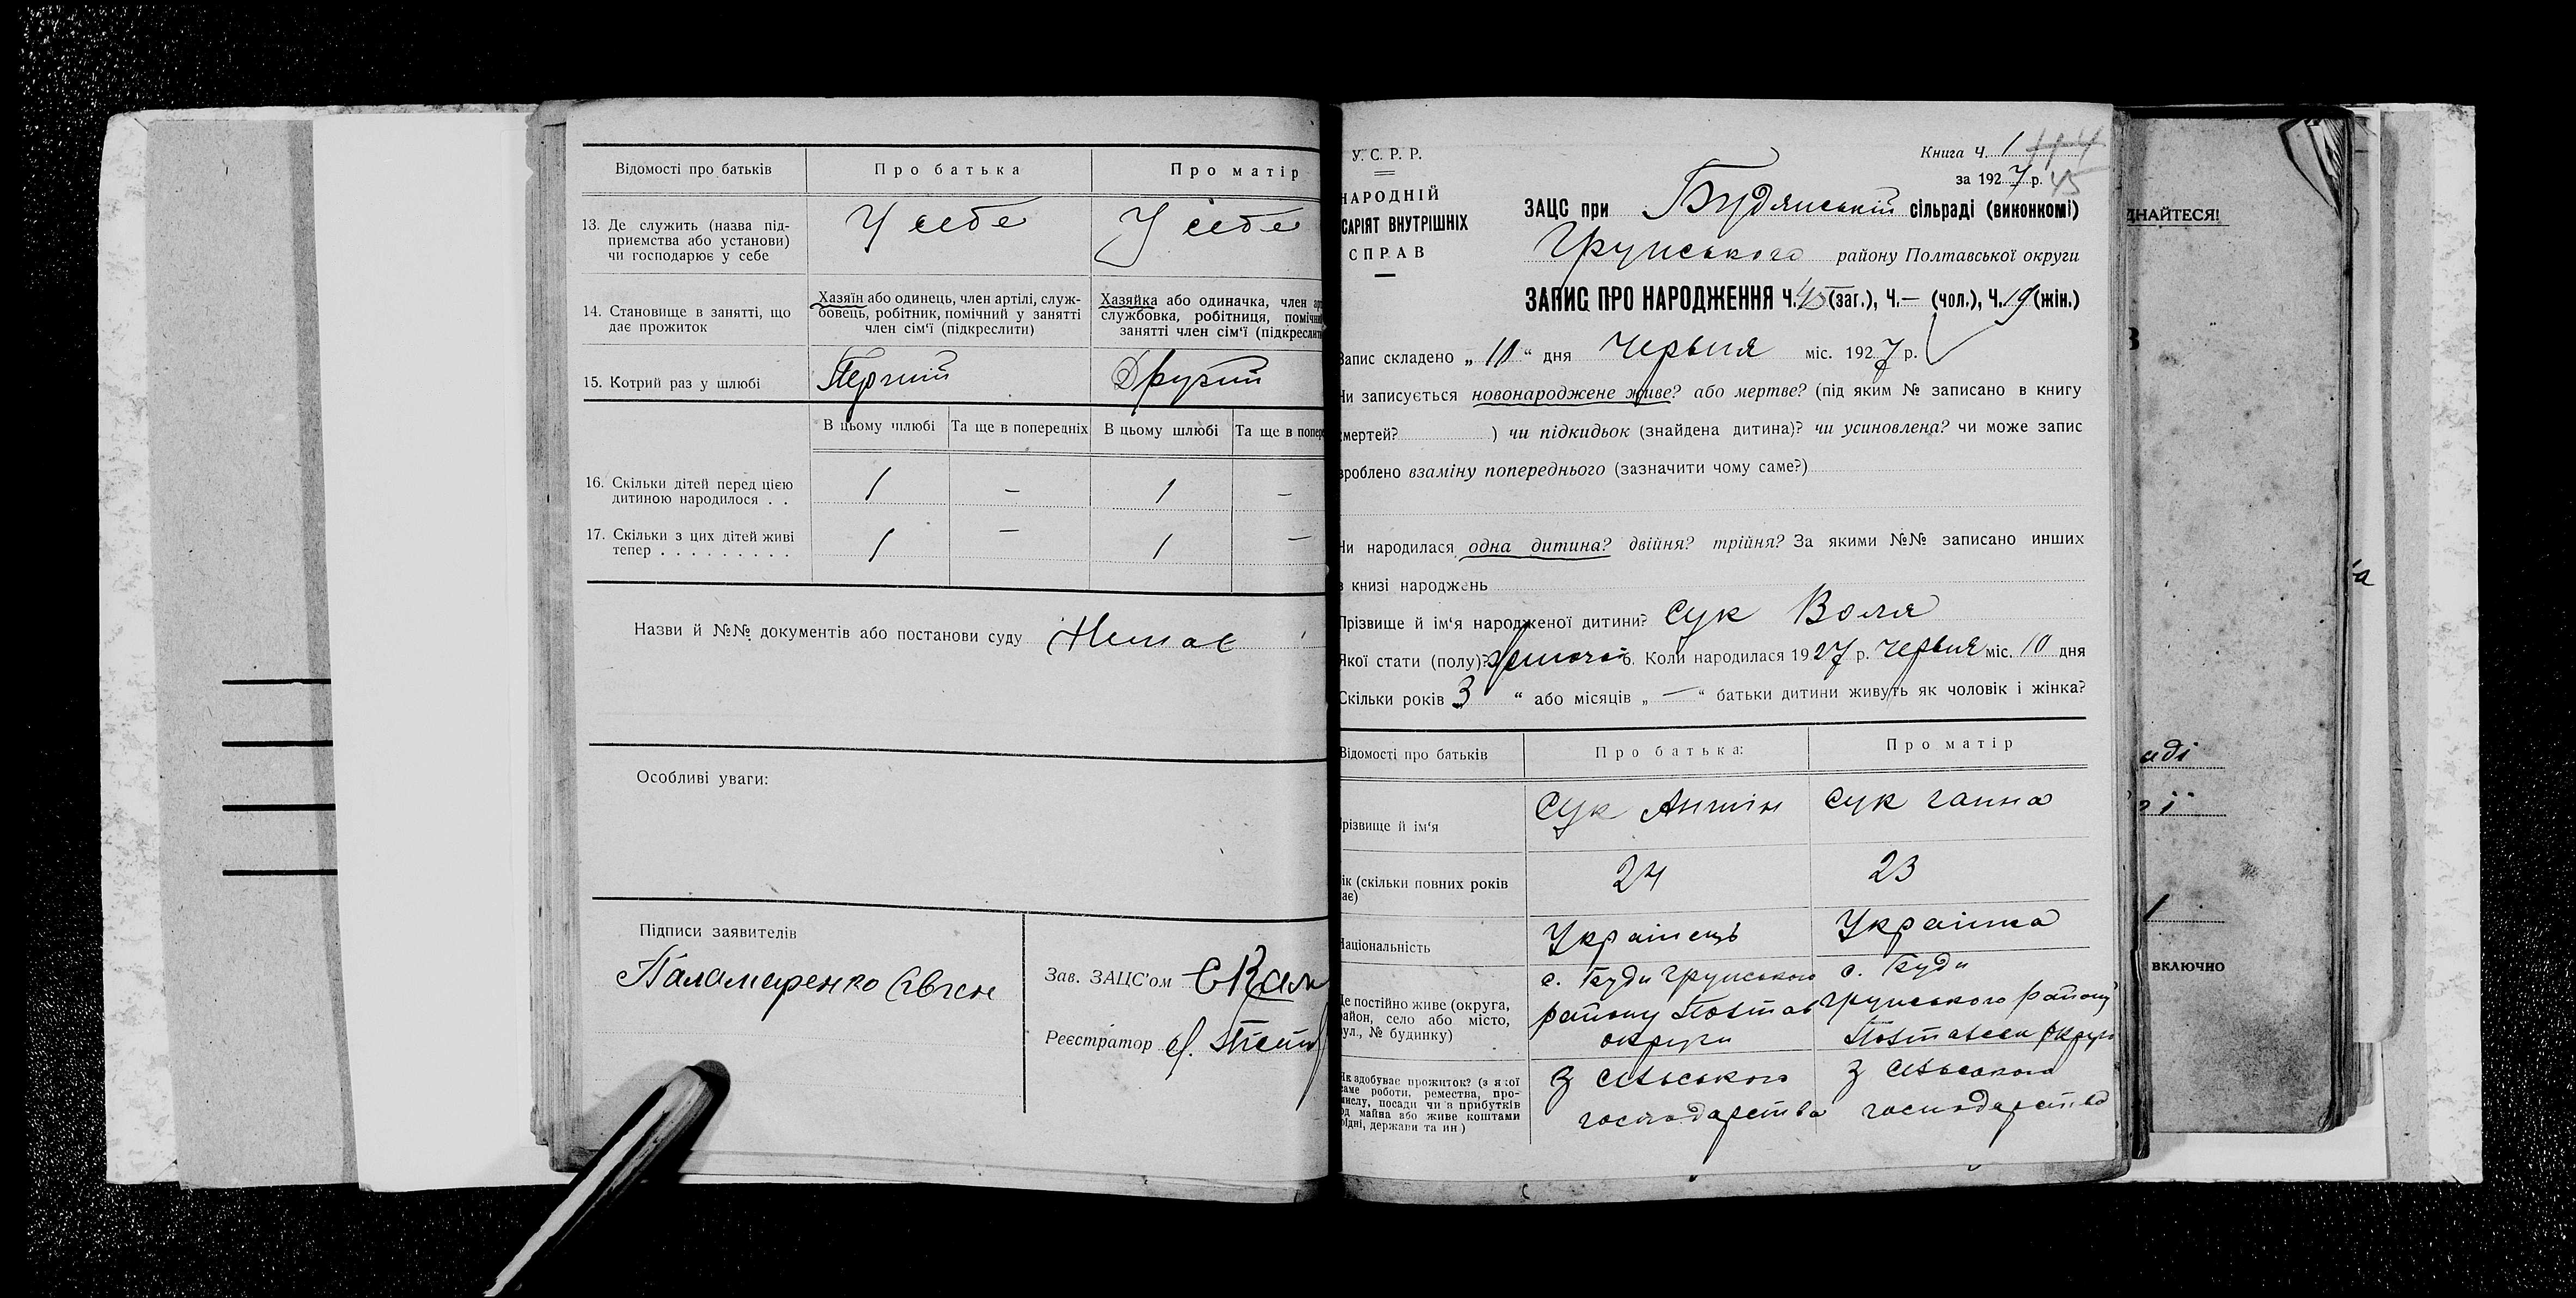 Відомості про батьків
Про батька
Про матір
13. Де служить (назва під-
приємства або установи)
чи господарює у себе
У себе
У себе
14. Становище в занятті, що
дає прожиток
Хазяїн або одинець, член артілі, служ-
бовець, робітник, помічний у занятті
член сім'ї (підкреслити)
Хазяйка або одиначка, член ар
службовка, робітниця, помічн
занятті член сім'ї (підкреслит
15. Котрий раз у шлюбі
Перший
Другий
В цьому шлюбі
Та ще в попередніх
В цьому шлюбі
Та ще в попере
16. Скільки дітей перед цією
дитиною народилося . .
1 — 1 —
17. Скільки з цих дітей живі
тепер . . . . . . . . .
1 — 1 —
Назви й №№ документів або постанови суду Немає
Особливі уваги:
Підписи заявителів
Паламаренко Євген
Зав. ЗАЦС'ом
Реєстратор
У. С. Р. Р.
НАРОДНІЙ
САРІЯТ ВНУТРІШНІХ
СПРАВ
Книга Ч. 1
за 1927 р. 45
ЗАЦС при Будянській сільраді (виконкомі)
Грунського району Полтавської округи
ЗАПИС ПРО НАРОДЖЕННЯ Ч. 45 (заг.), Ч. — (чол.), Ч. 19 (жін.)
Запис складено „ 10 “ дня червня міс. 1927 р.
Чи записується новонароджене живе? або мертве? (під яким № записано в книгу
смертей? ) чи підкидьок (знайдена дитина)? чи усиновлена? чи може запис
зроблено взаміну попереднього (зазначити чому саме?)
Чи народилася одна дитина? двійня? трійня? За якими №№ записано инших
в книзі народжень
Прізвище й ім'я народженої дитини? Сук Воля
Якої стати (полу)? жіночої 6. Коли народилася 1927 р. червня міс. 10 дня
Скільки років 3 “ або місяців „ — “ батьки дитини живуть як чоловік і жінка?
Відомості про батьків
Про батька:
Про матір
різвище й ім'я
Сук Антін
Сук Ганна
ік (скільки повних років
ає)
24
23
Національність
Українець
Українка
е постійно живе (округа,
район, село або місто,
вул., № будинку)
с. Буди Грунського
району Полтав
округи
с. Буди
Грунського району
Полтавськ округи
Як здобуває прожиток? (з якої
саме роботи, ремества, про-
мислу, посади чи з прибутків
од майна або живе коштами
рідні, держави та ин)
З сільського
господарства
З сільського
господарства
ДНАЙТЕСЯ!
аді
ії
1
ВКЛЮЧНО